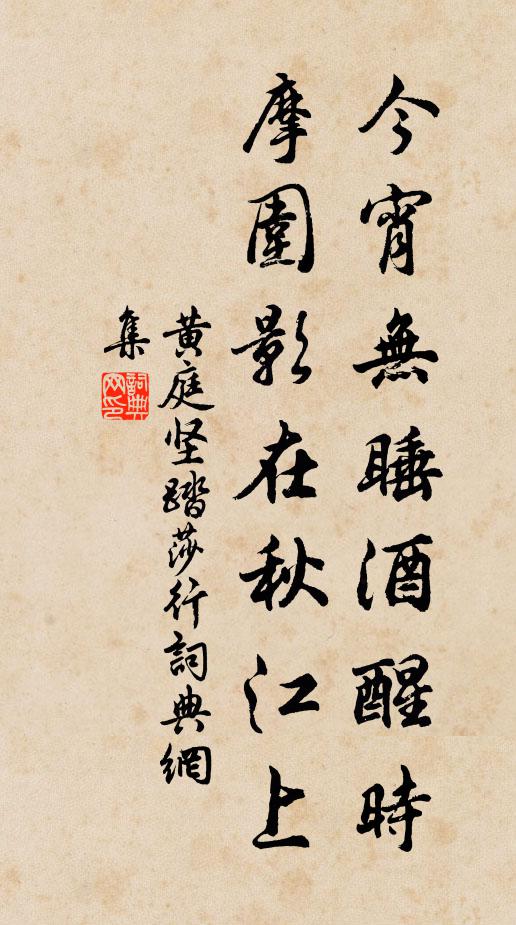 今宵無睡酒醒時
摩圍影在秋江上
黄庭坚踏莎行詞典網
集
詞典網印